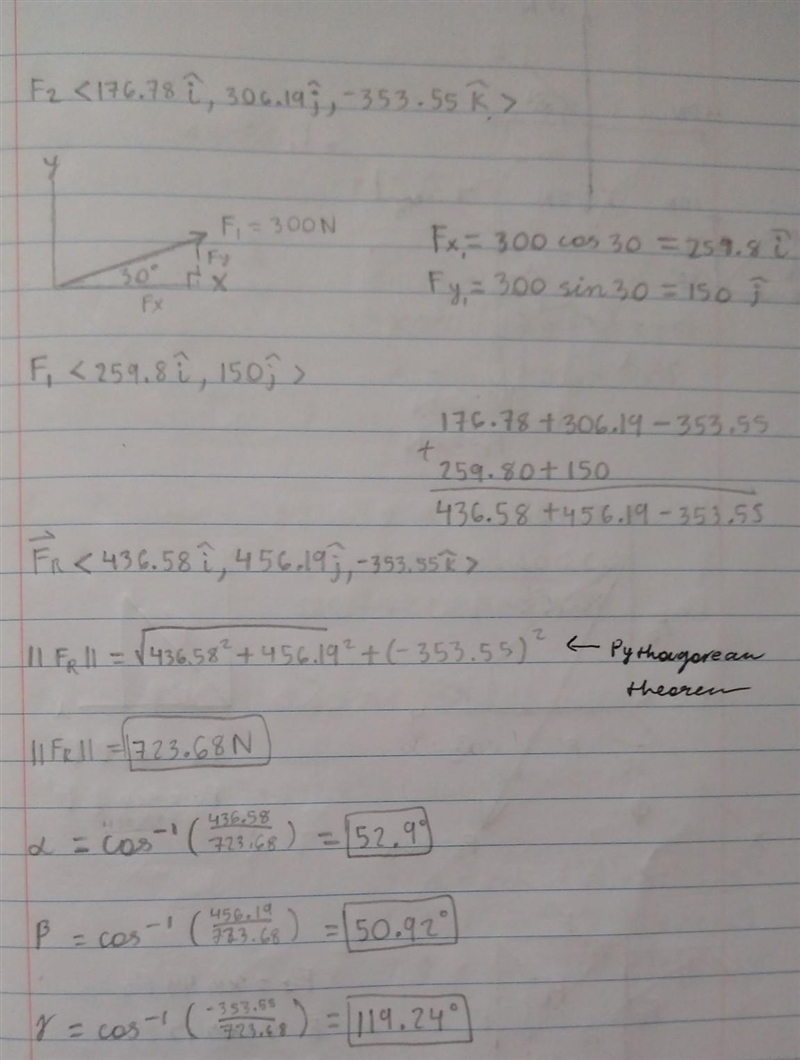 F2 <176.78 î, 306.19 ĵ, -353.55 k̂>
y
F₁ = 300N
Fy
30°
x
Fx
Fx₁ = 300 cos 30 = 259.8 î
Fy₁ = 300 sin 30 = 150 ĵ
F₁ <259.8 î, 150 ĵ>
176.78 + 306.19 - 353.55
+
259.80 + 150
436.58 + 456.19 - 353.55
F⃗R <436.58 î, 456.19 ĵ, -353.55 k̂>
||FR|| = √436.58² + 456.19² + (-353.55)² ← Pythagorean
theorem
||FR|| = 723.68N
α = cos⁻¹ (436.58/723.68) = 52.9°
β = cos⁻¹ (456.19/723.68) = 50.92°
γ = cos⁻¹ (-353.55/723.68) = 119.24°